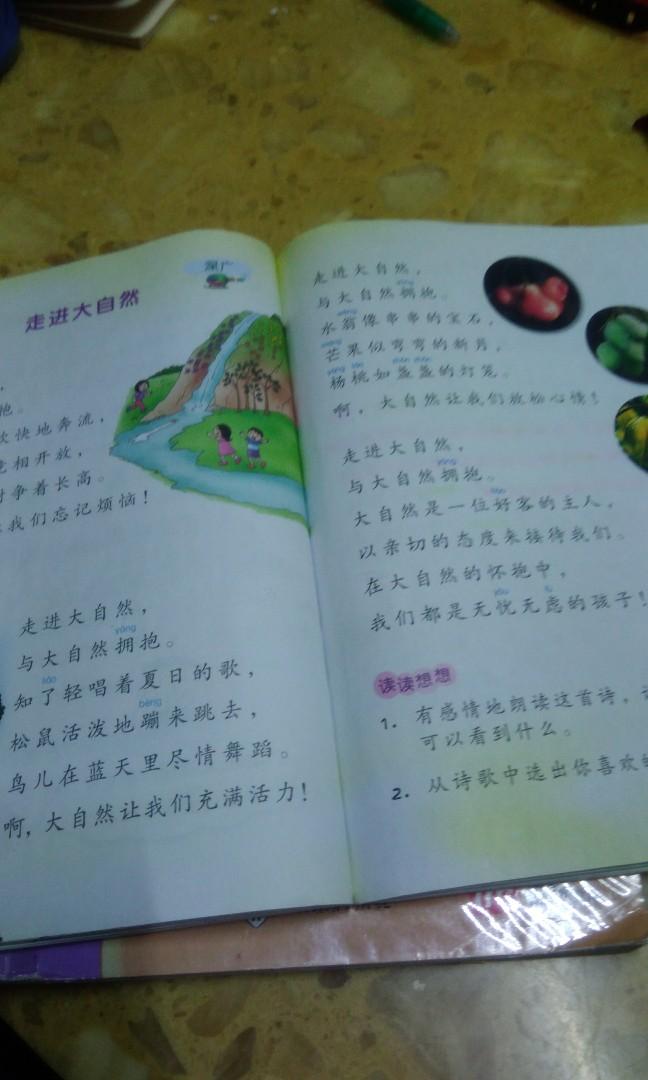 深广
走进大自然
，
抱。
欢快地奔流，
竞相开放，
树争着长高。
让我们忘记烦恼！
走进大自然，
yōng
与大自然拥抱。
liǎo
知了轻唱着夏日的歌，
bèng
松鼠活泼地蹦来跳去，
鸟儿在蓝天里尽情舞蹈。
啊，大自然让我们充满活力！
走进大自然，
yōng
与大自然拥抱。
wēng
水翁像串串的宝石，
máng
芒果似弯弯的新月，
yáng táo zhǎn zhǎn
杨桃如盏盏的灯笼。
啊，大自然让我们放松心情！
走进大自然，
yōng
与大自然拥抱。
hào
大自然是一位好客的主人，
以亲切的态度来接待我们。
在大自然的怀抱中，
yōu lǜ
我们都是无忧无虑的孩子！
读读想想
1. 有感情地朗读这首诗，
可以看到什么。
2. 从诗歌中选出你喜欢的